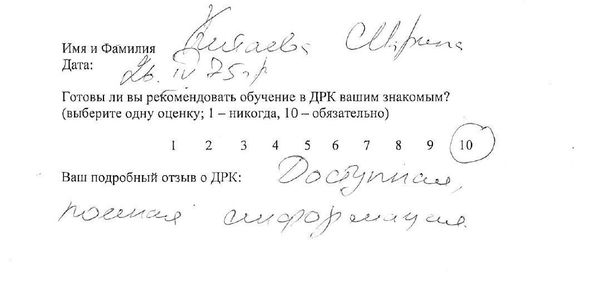 Имя и Фамилия Китаева Марина
Дата: 26. IV 75 г.р
Готовы ли вы рекомендовать обучение в ДРК вашим знакомым?
(выберите одну оценку; 1 – никогда, 10 – обязательно)
1 2 3 4 5 6 7 8 9 10
Ваш подробный отзыв о ДРК: Доступная,
полная информация.